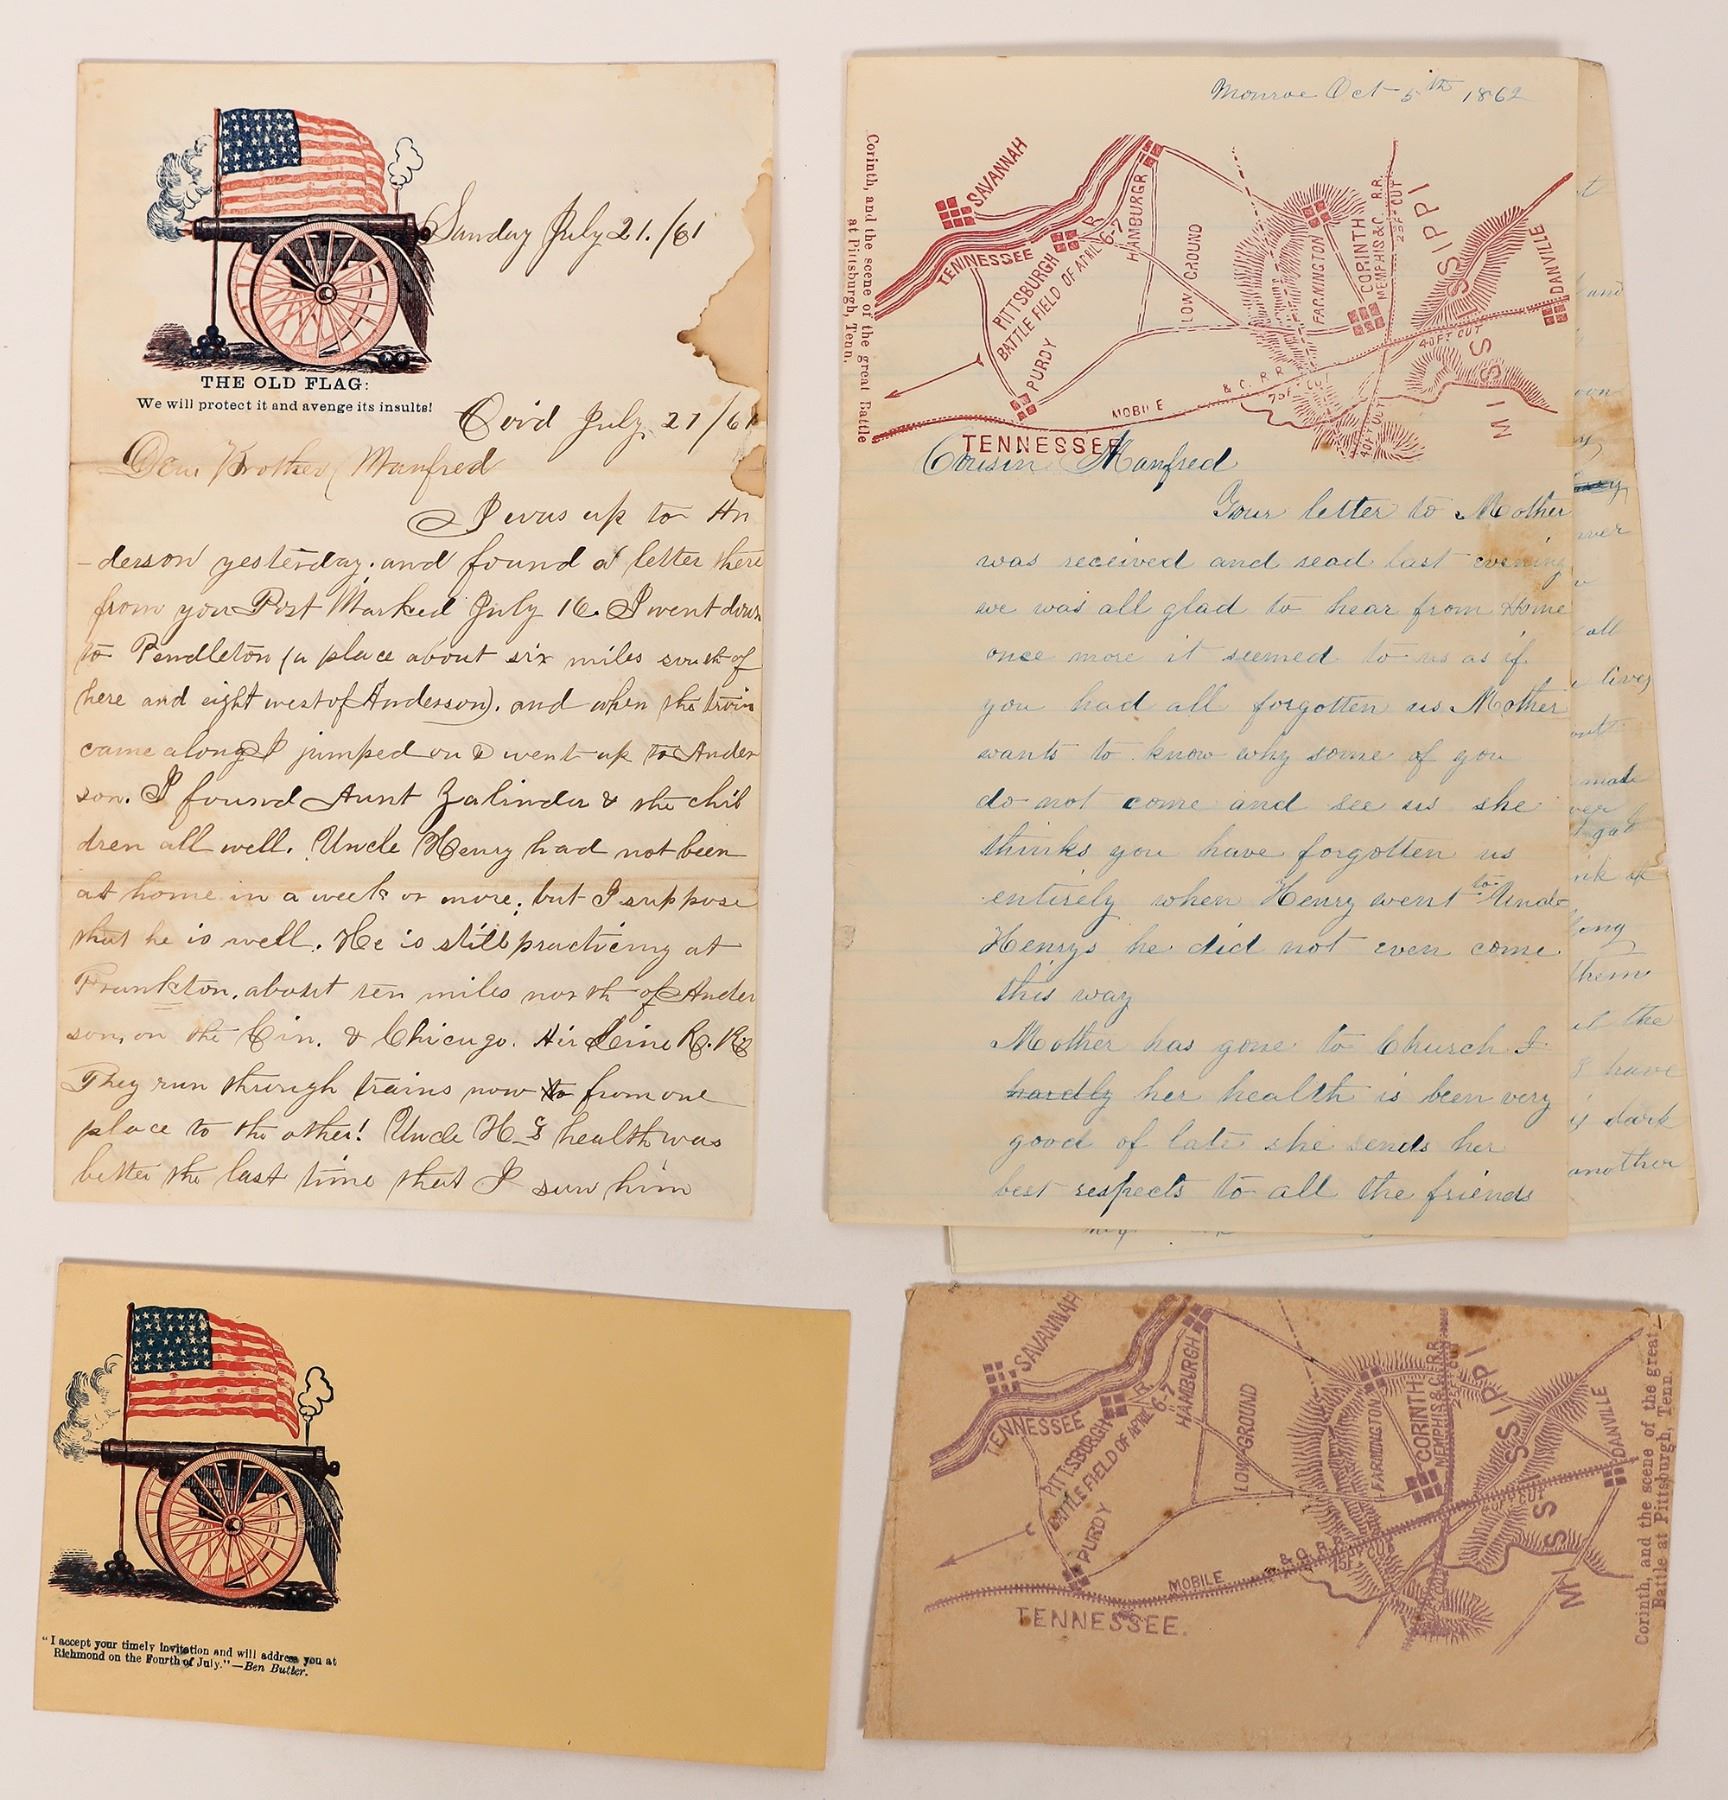 Sunday July 21./61
THE OLD FLAG:
We will protect it and avenge its insults!
Cev'd July, 27/61
Dear Brother Manfred
I was up to An
-derson yesterday. and found a letter there
from you Post Marked July 16. I went down
to Pendleton (a place about six miles south of
here and eight west of Anderson). and when the train
came along I jumped on & went up to Ander
son. I found Aunt Zalinda & the chil
dren all well. Uncle Henry had not been
at home in a week or more; but I suppose
that he is well. He is still practicing at
Frankton, about ten miles north of Ander
son, on the Cin. & Chicago. Air Line R. R.
They run through trains now to from one
place to the other! Uncle H_s health was
better the last time that I saw him
Monroe Oct 5th 1862
Corinth, and the scene of the great Battle
at Pittsburgh, Tenn.
SAVANNAH
TENNESSEE
R.
PITTSBURGH
BATTLE FIELD OF APRIL 6-7
HAMBURGR
LOW GROUND
PURDY
FARNINGTON
CORINTH
MEMPHIS & C. R.R.
25 FT CUT
MISSISSIPPI
DANVILLE
40 FT CUT
MOBILE & C. R R
75 FT CUT
40 FT CUT
TENNESSEE
Cousin Manfred
Your letter to Mother
was received and read last evening
we was all glad to hear from Home
once more it seemed to us as if
you had all forgotten us Mother
wants to know why some of you
do not come and see us she
thinks you have forgotten us
entirely when Henry went to Uncle
Henrys he did not even come
this way
Mother has gone to Church I
hardly her health is been very
good of late she sends her
best respects to all the friends
and
all
lives
made
ver
them
the
have
dark
another
"I accept your timely invitation and will address you at
Richmond on the Fourth of July."—Ben Butler.
SAVANNAH
TENNESSEE
R.
PITTSBURGH
BATTLE FIELD OF APRIL 6-7
HAMBURGH
LOW GROUND
PURDY
FARNINGTON
CORINTH
MEMPHIS & C. R.R.
25 FT CUT
MISSISSIPPI
DANVILLE
40 FT CUT
MOBILE & O. R R
75 FT CUT
TENNESSEE.
Corinth, and the scene of the great
Battle at Pittsburgh, Tenn.